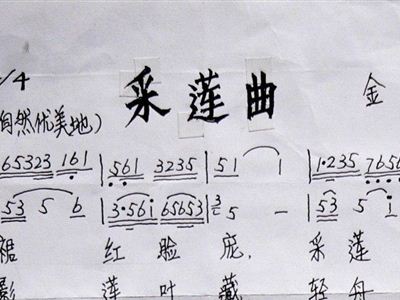 采莲曲
/4 金
自然优美地)
65323 161 | 561 3235 | 51 1 | 1·235 7656
53 5 6 | 3·561 65653 | 3 5 — | 53 5 1
裙 红 脸 庞, 采 莲
影 莲 叶 藏 轻 舟